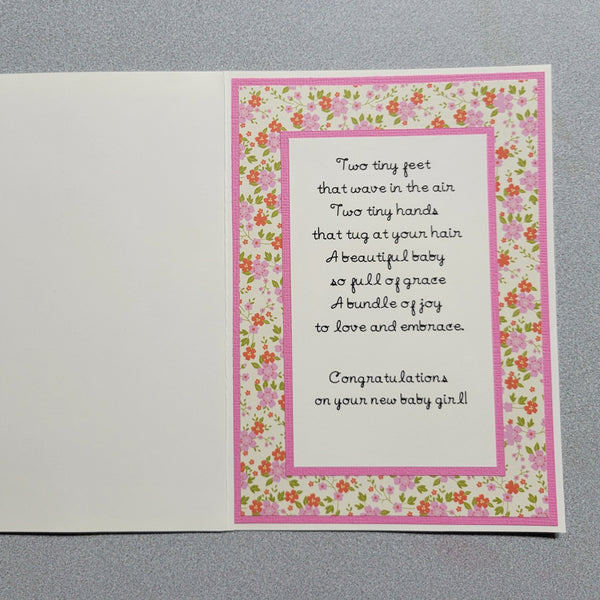 Two tiny feet
that wave in the air
Two tiny hands
that tug at your hair
A beautiful baby
so full of grace
A bundle of joy
to love and embrace.
Congratulations
on your new baby girl!